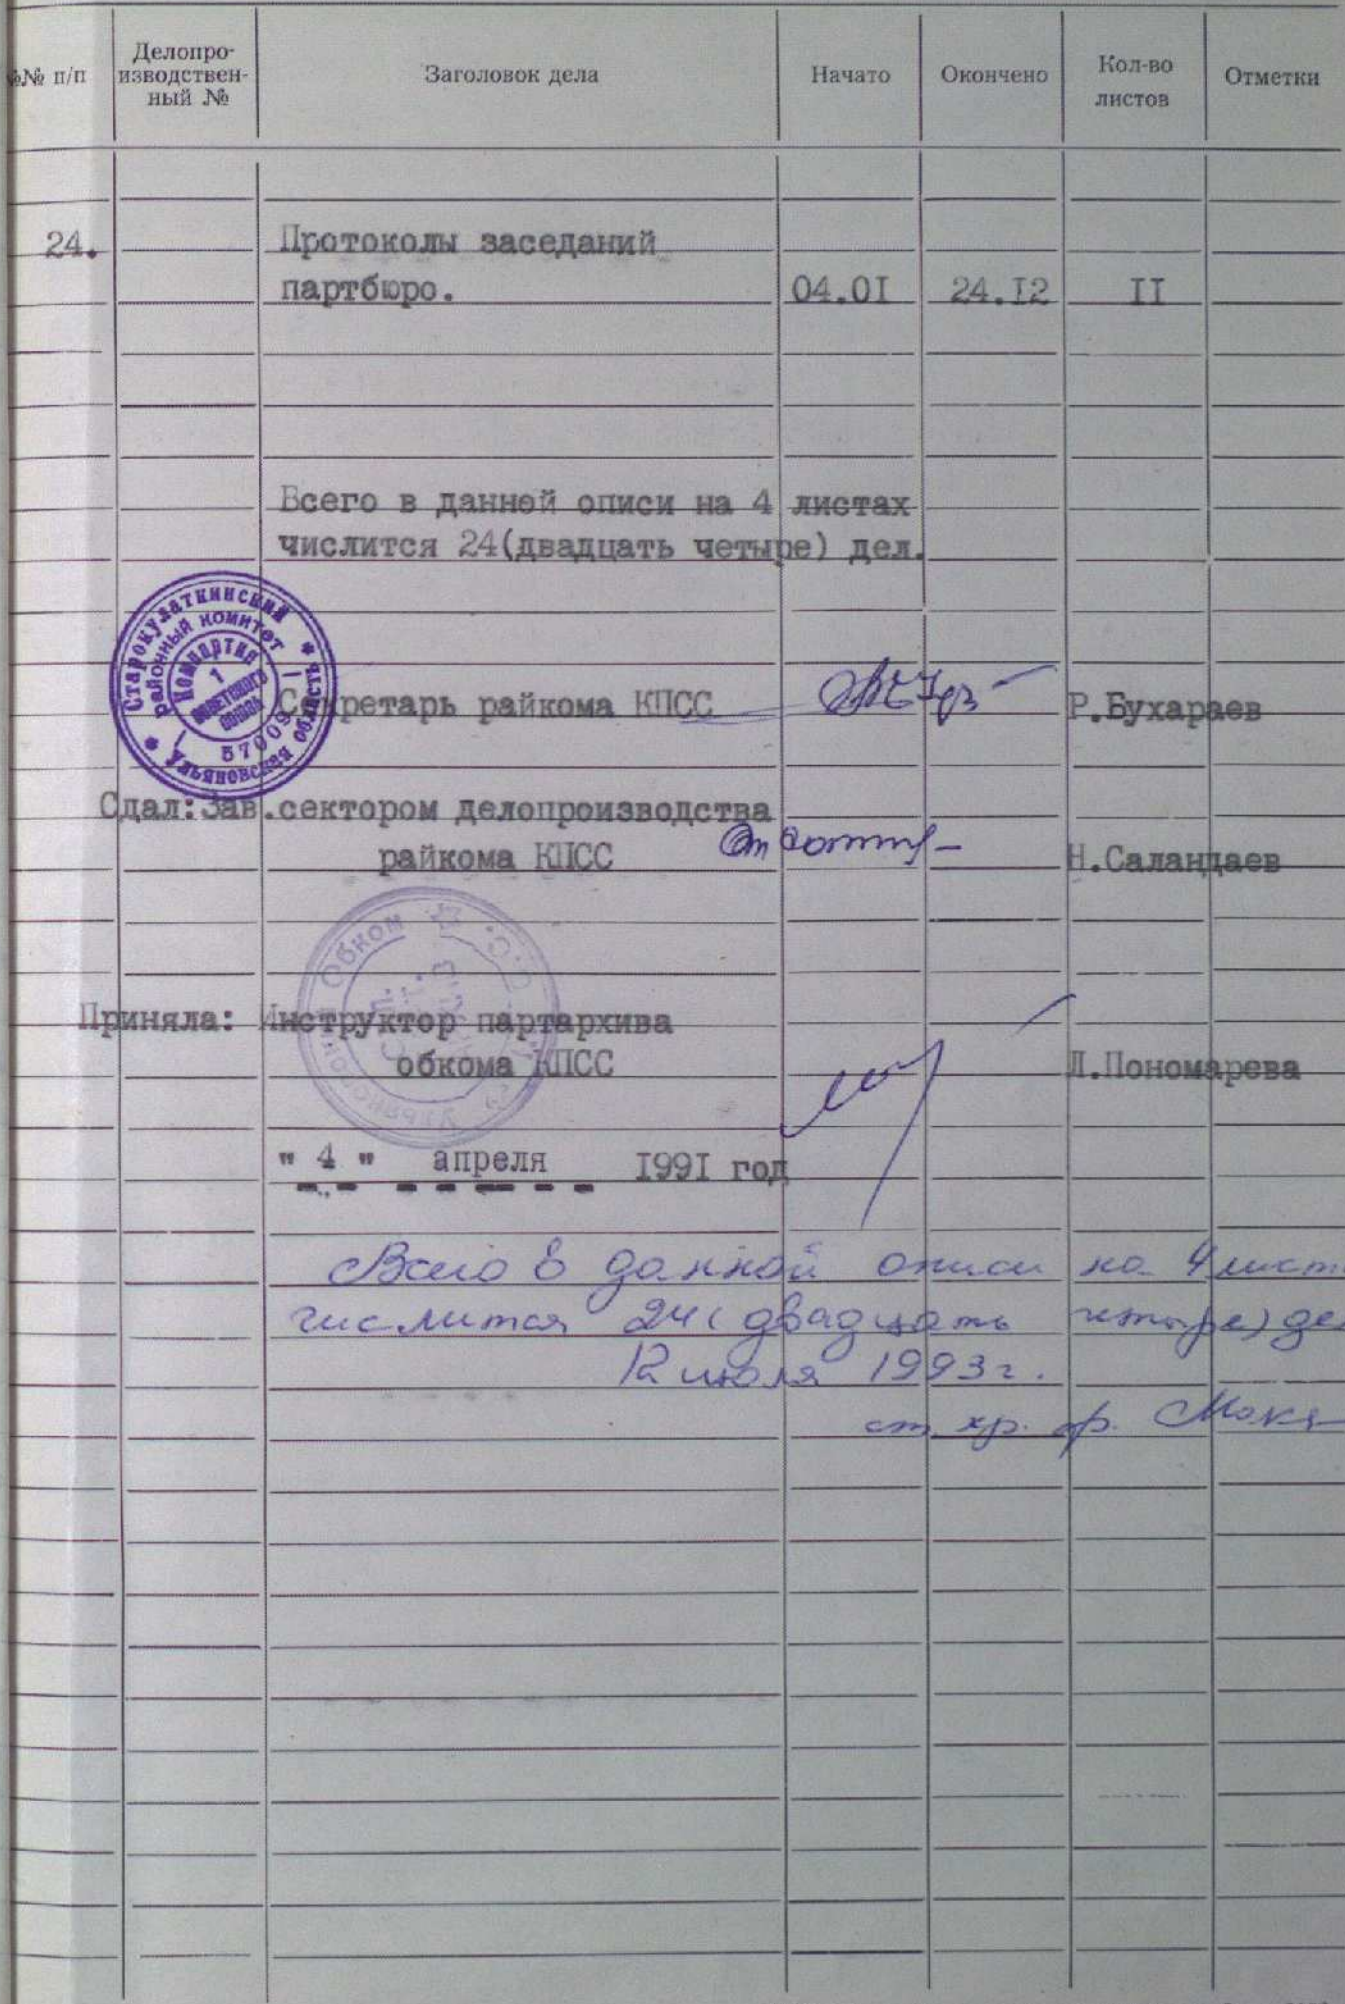 №№ п/п
Делопро-
изводствен-
ный №
Заголовок дела
Начато
Окончено
Кол-во
листов
Отметки
24.
Протоколы заседаний
партбюро. 04.0I 24.I2 II
Всего в данной описи на 4 листах
числится 24(двадцать четыре) дел.
Старокулаткинский
районный комитет
Компартия
Советского
Союза
Ульяновская область
Секретарь райкома КПСС Р.Бухараев
Сдал: Зав.сектором делопроизводства
райкома КПСС Н.Саландаев
Обком
Приняла: Инструктор партархива
обкома КПСС Л.Пономарева
" 4 " апреля I99I год
Всего в данной описи на 4 лист
числится 24 (двадцать четыре) де
12 июля 1993г.
ст. хр. ф.